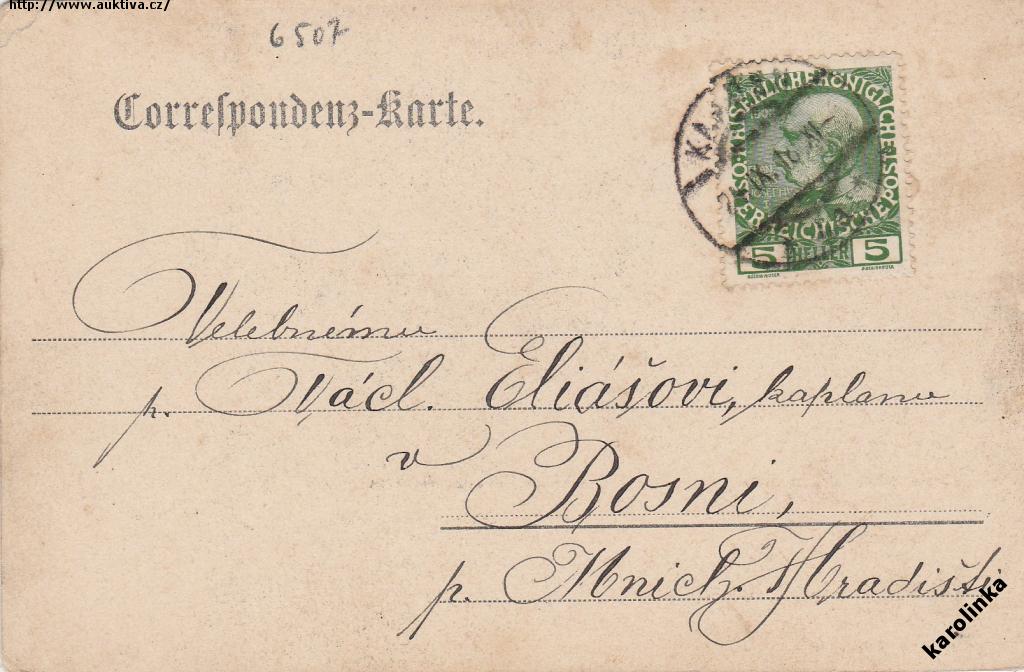 http://www.auktiva.cz/
6507
Correspondenz-Karte.
KAISERLICHE KÖNIGLICHE ÖSTERREICHISCHE POST
5 HELLER 5
Velebnému
p. Václ. Eliášovi, kaplanu
v Bosni,
p. Mnich. Hradišti
karolinka